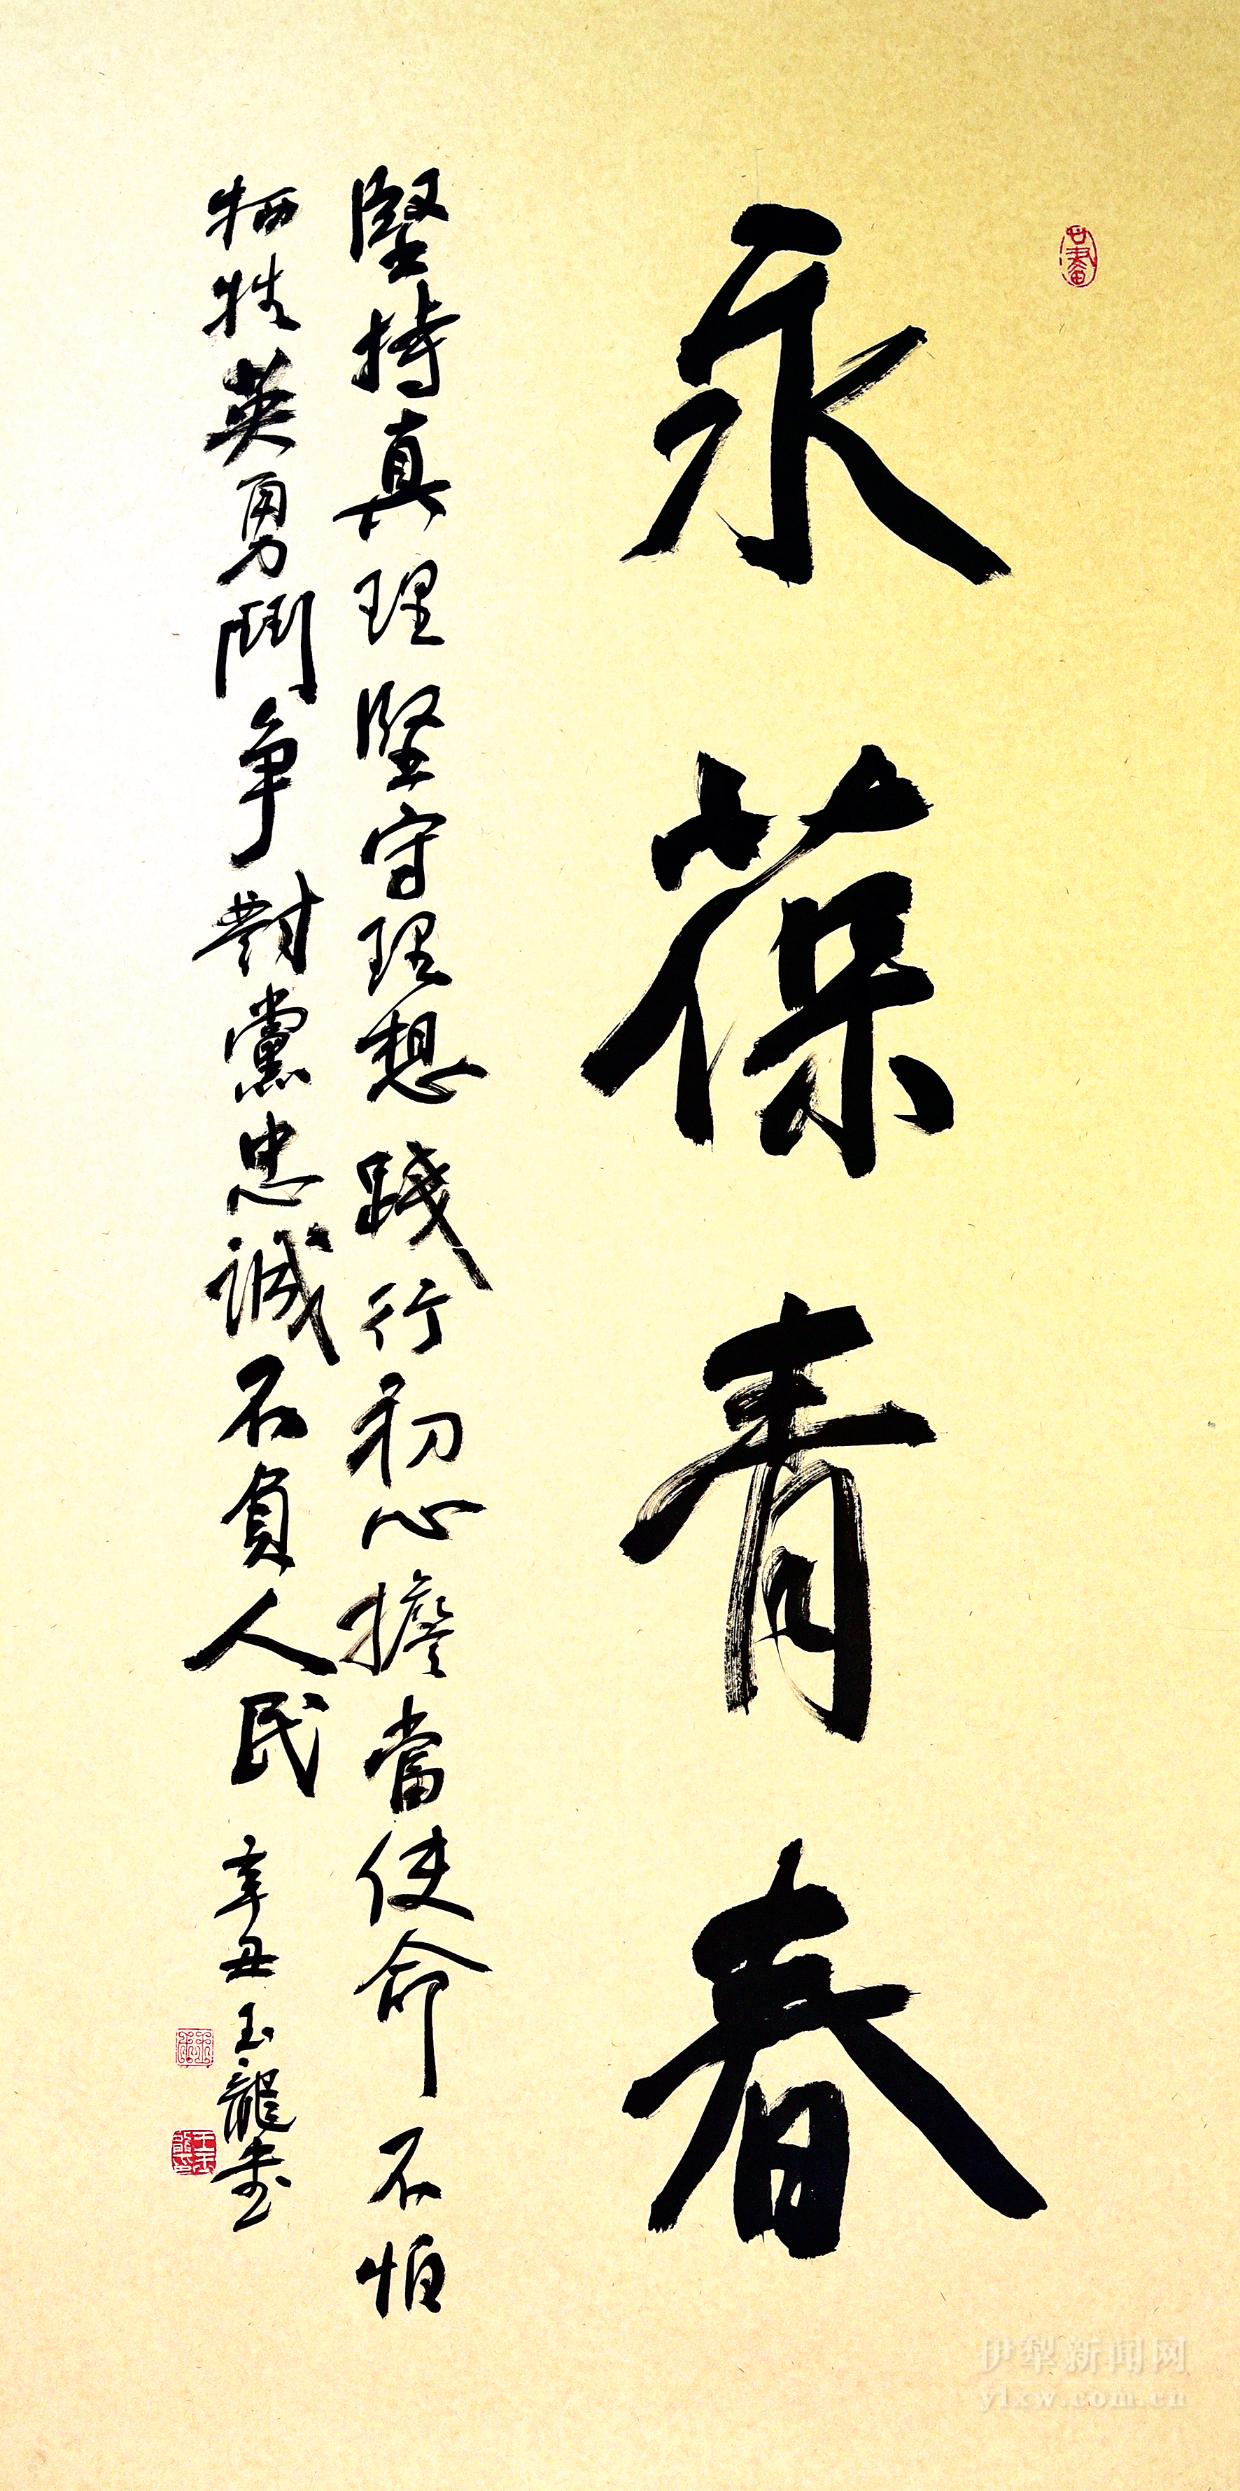 永葆青春
堅持真理堅守理想踐行初心擔當使命不怕
牺牲英勇鬥争對黨忠誠不負人民 辛丑玉龍書
伊犁新闻网
ylxw.com.cn